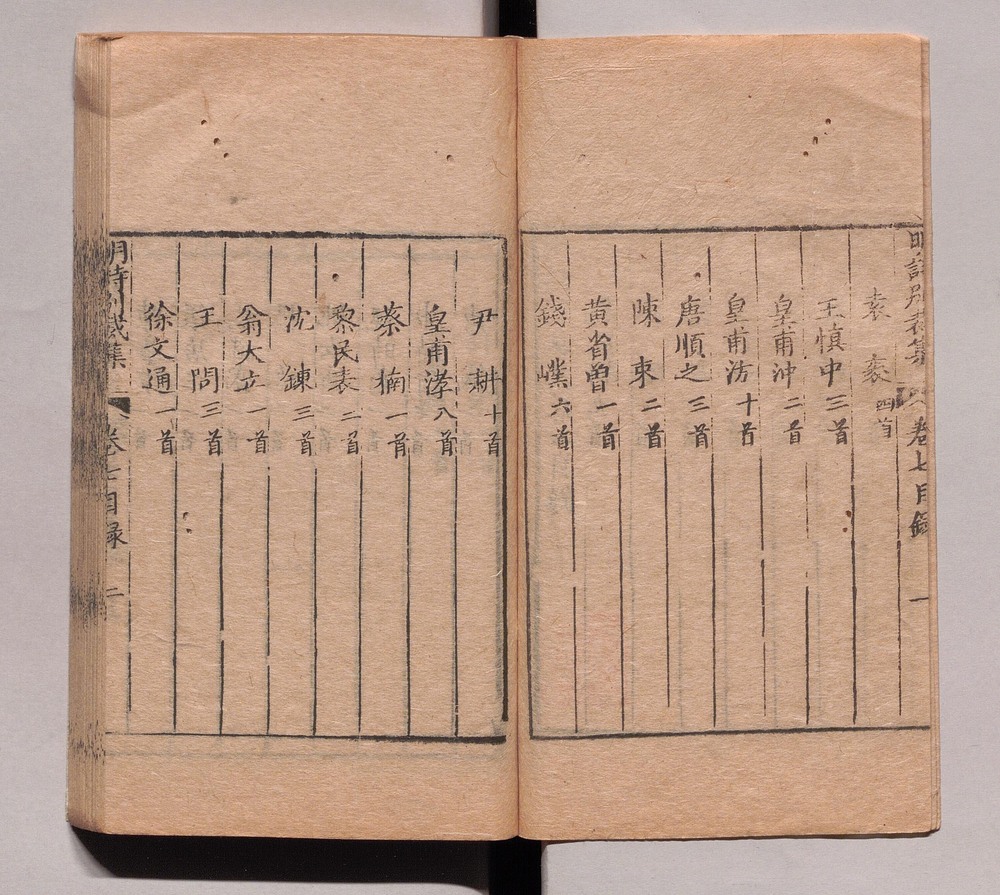 明詩別裁集 卷七目錄 一
袁袠 四首
王慎中 三首
皇甫沖 二首
皇甫涍 十首
唐順之 三首
陳束 二首
黃省曾 一首
錢嶪 六首
尹耕 十首
皇甫濂 八首
蔡楠 一首
黎民表 二首
沈鍊 三首
翁大立 一首
王問 三首
徐文通 一首
明詩別裁集 卷七目錄 二